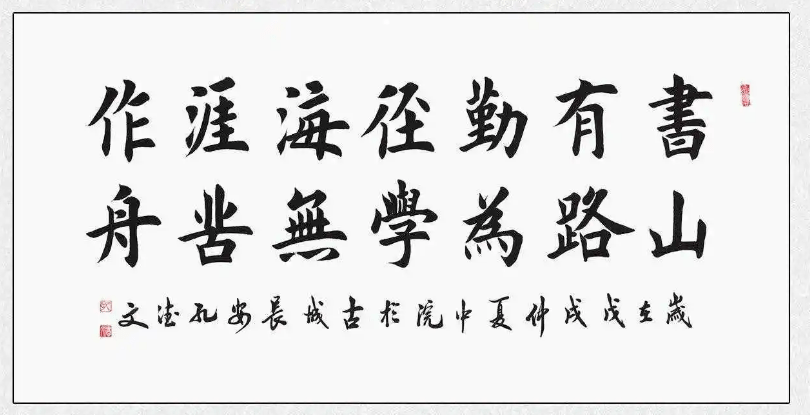 書山
有路
勤為
径學
海無
涯苦
作舟
歲在戊戌仲夏中浣於古城長安孔德文